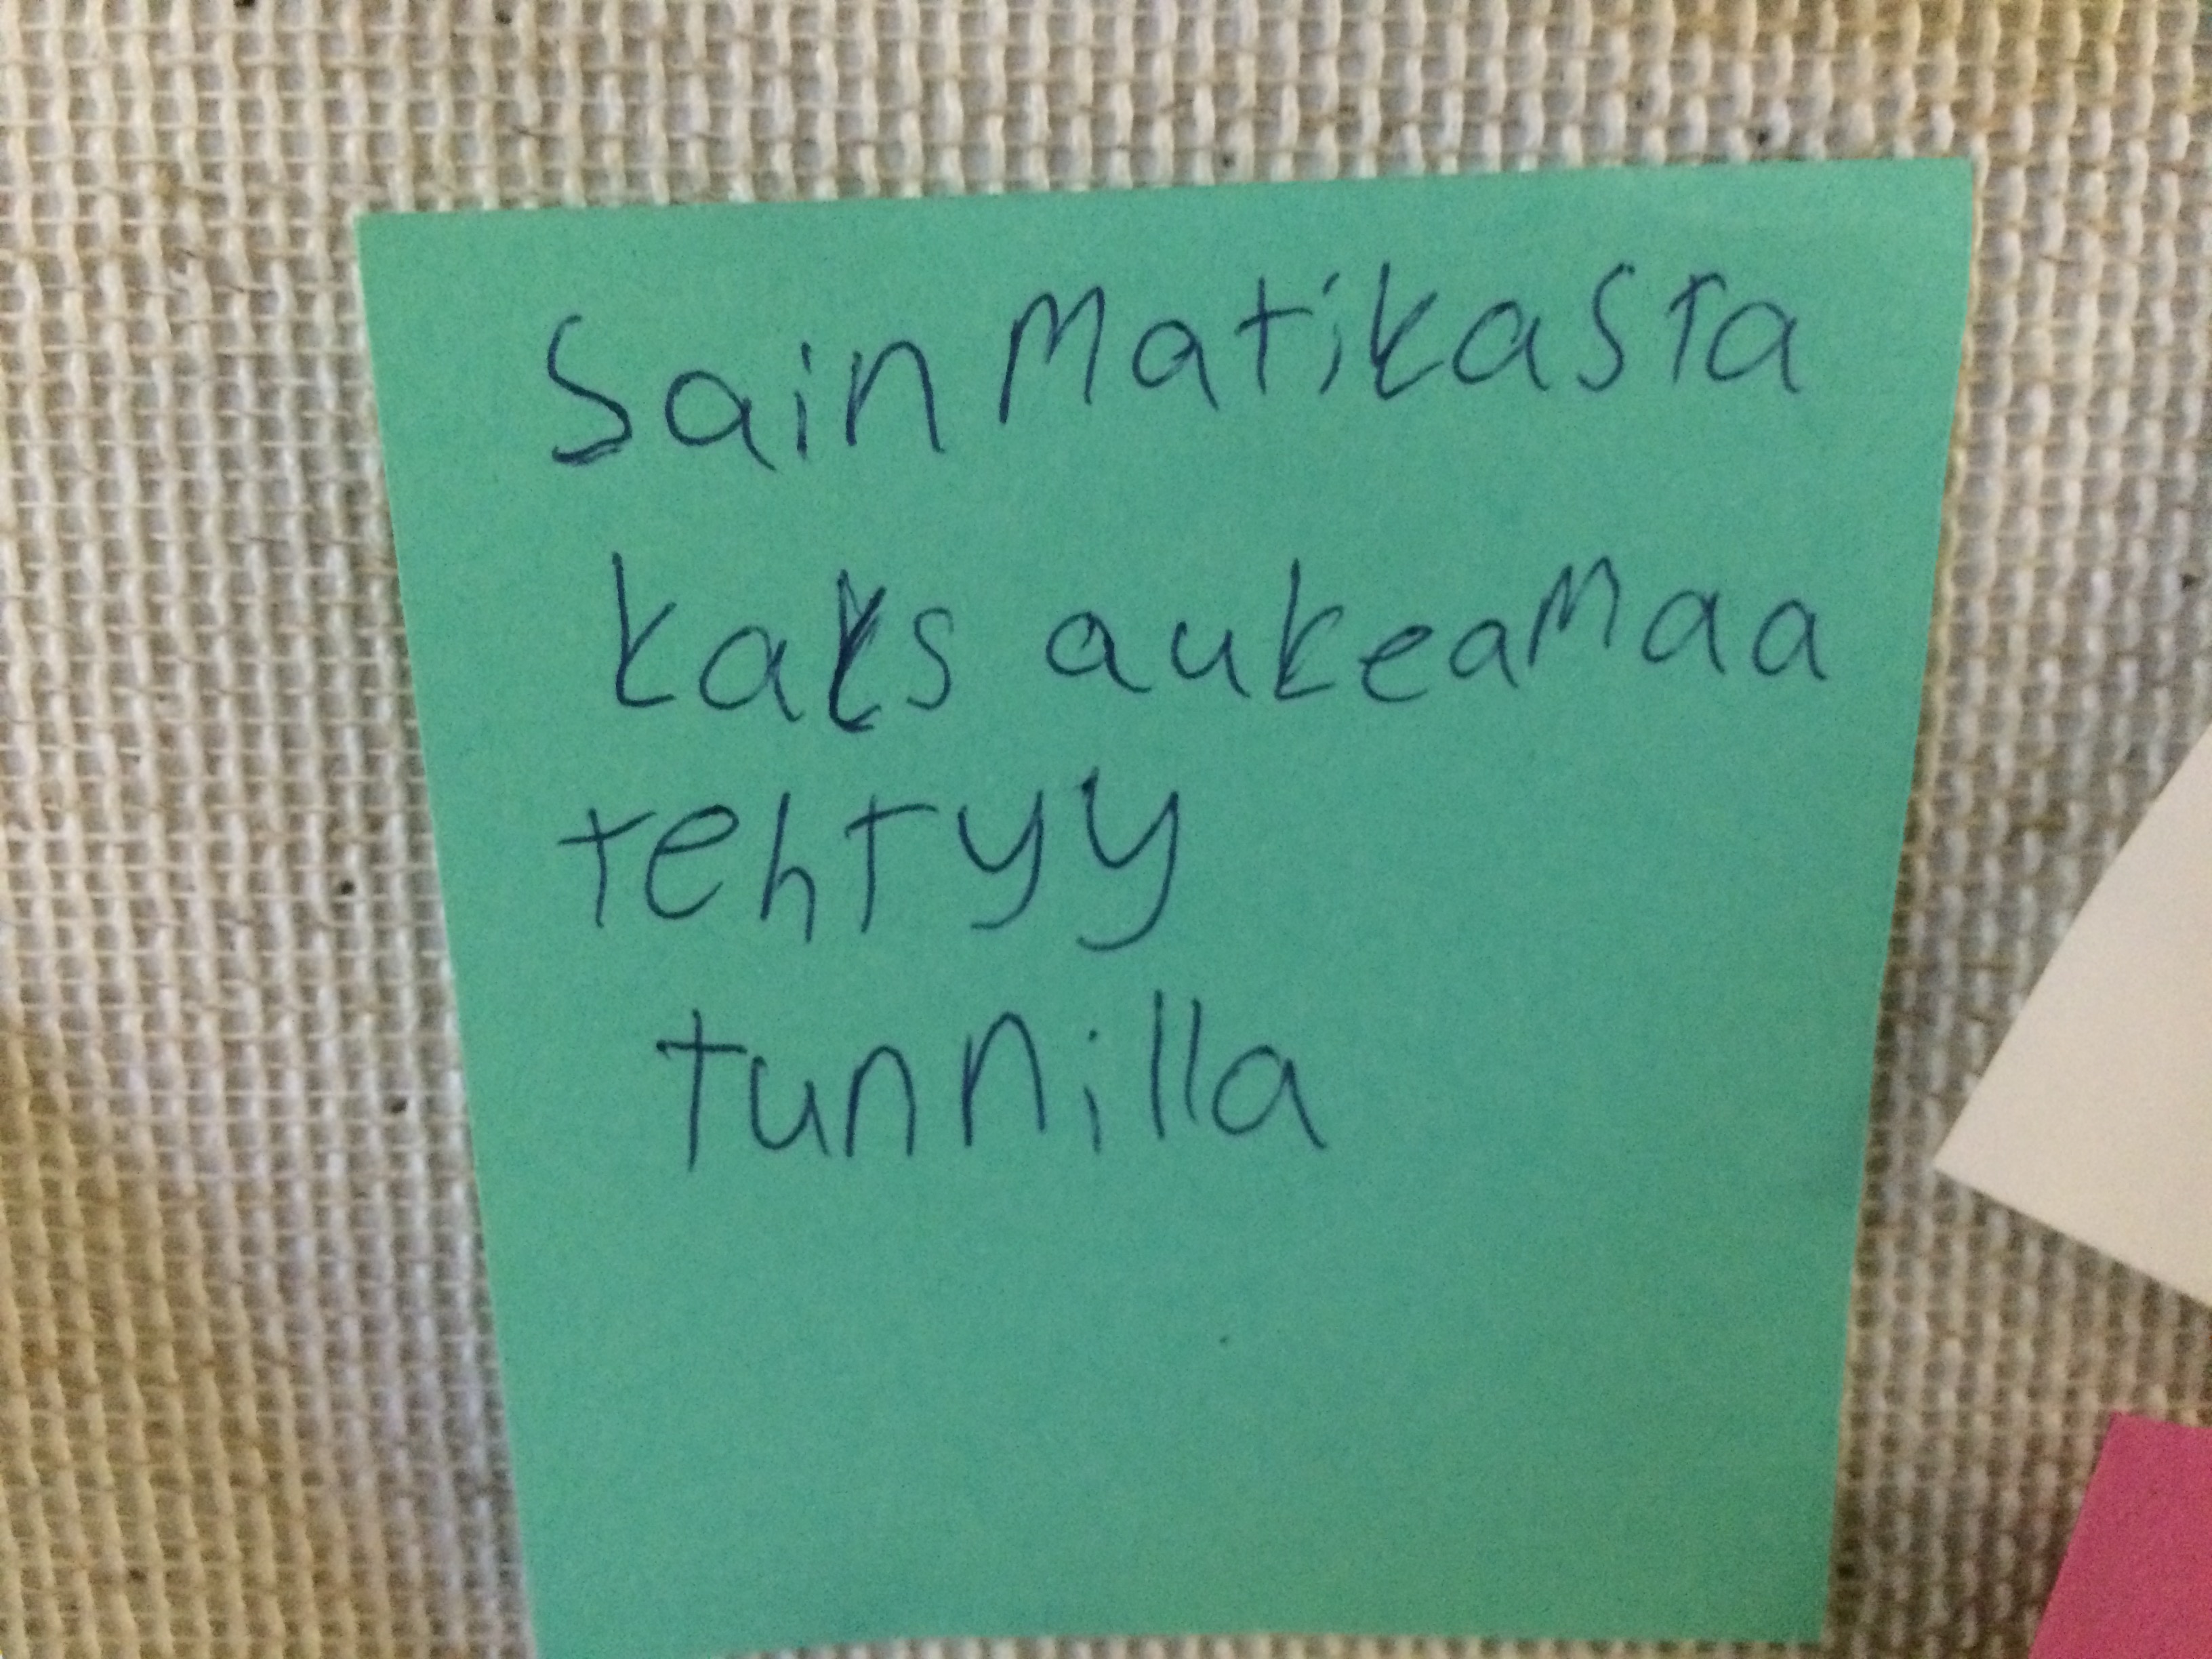 Sain Matikasta
kaks aukeamaa
tehtyy
tunnilla